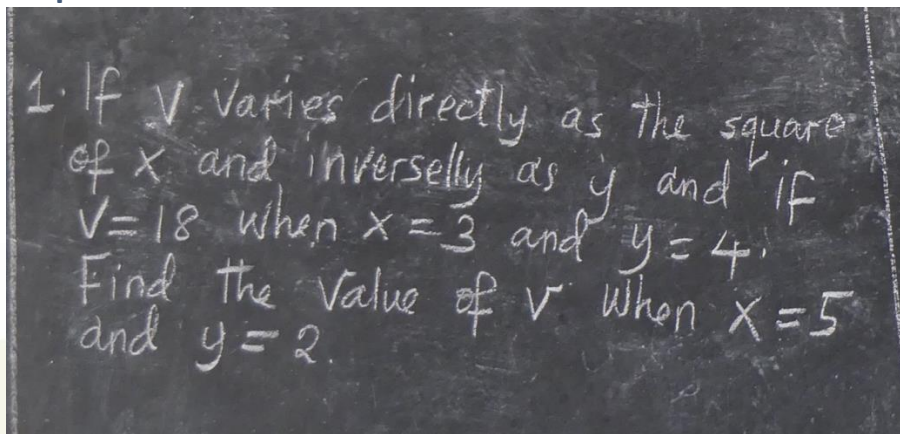 1. If V varies directly as the square
of x and inverselly as y and if
V=18 when x=3 and y=4.
Find the value of v when x=5
and y=2.